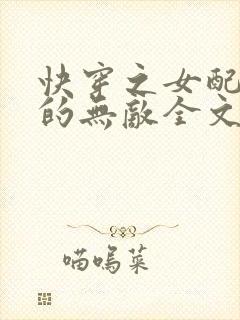 快穿之女配
的無敵全文
喵嗚菜